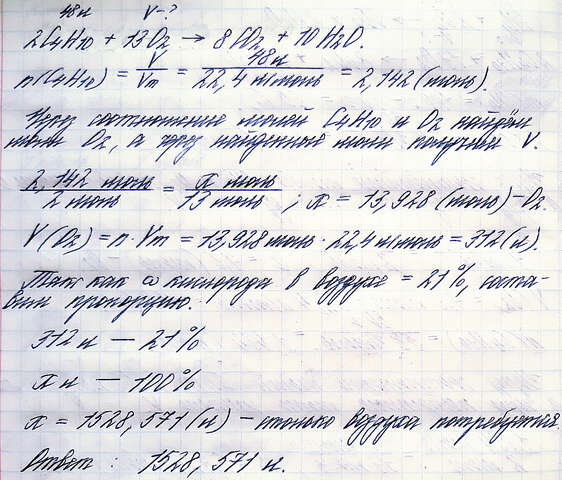 48л V-?
2C₄H₁₀ + 13O₂ → 8CO₂ + 10H₂O.
n(C₄H₁₀) = V/Vm = 48л/22,4 л/моль = 2,142 (моль).
Через соотношение молей C₄H₁₀ и O₂ найдём
моли O₂, а через найденные моли получим V.
2,142 моль/2 моль = x моль/13 моль ; x = 13,928 (моль) - O₂.
V(O₂) = n · Vm = 13,928 моль · 22,4 л/моль = 312 (л).
Так как ω кислорода в воздухе = 21%, соста-
вим пропорцию.
312 л — 21%
x л — 100%
x = 1528,571 (л) - столько воздуха потребуется.
Ответ : 1528,571 л.